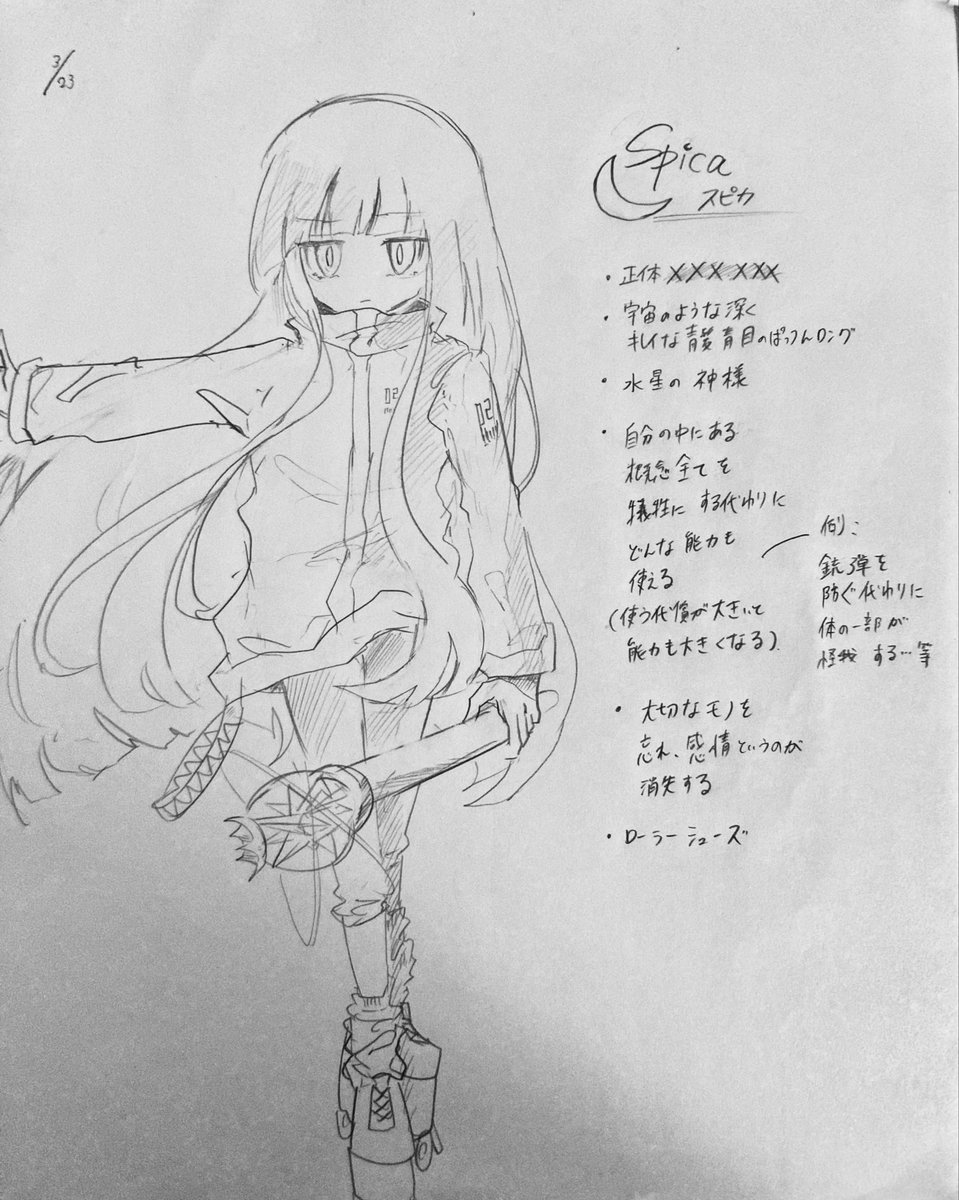 3/23
Spica
スピカ
・正体 XXX XXX
・宇宙のような深く
キレイな青髪青目のぱっつんロング
・水星の神様
・自分の中にある
概念全てを
犠牲にする代わりに
どんな能力も
使える
(使う代償が大きいて
能力も大きくなる)
例:
銃弾を
防ぐ代わりに
体の一部が
怪我する…等
・大切なモノを
忘れ、感情というのが
消失する
・ローラーシューズ
02
02